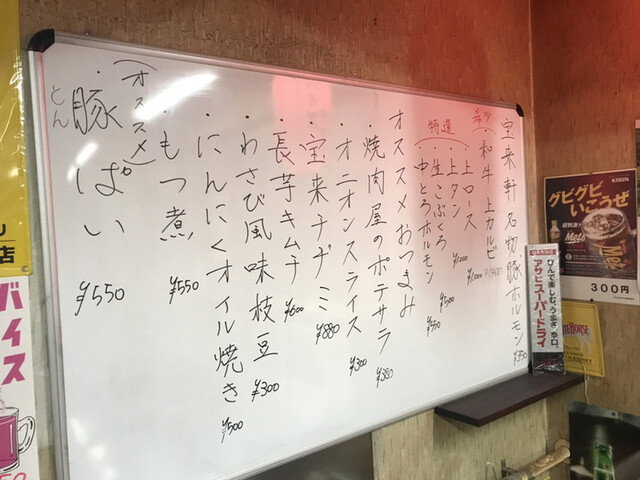 宝来軒名物豚ホルモン ¥350
希少
・和牛上カルビ
上ロース ¥1,000
特選
・上タン ¥1,000
・生こぶくろ ¥500
・中とろホルモン ¥550
オススメおつまみ
・焼肉屋のポテサラ ¥380
・オニオンスライス ¥300
・宝来チヂミ ¥880
・長芋キムチ ¥600
・わさび風味枝豆 ¥300
・にんにくオイル焼き ¥500
・もつ煮 ¥550
(オススメ)
・豚ぱい ¥550
とん
KIRIN
グビグビ
いこうぜ
Mets
300円
びんで楽しむ、うまさ。辛口。
アサヒスーパードライ
WHITE HORSE
バイス
店